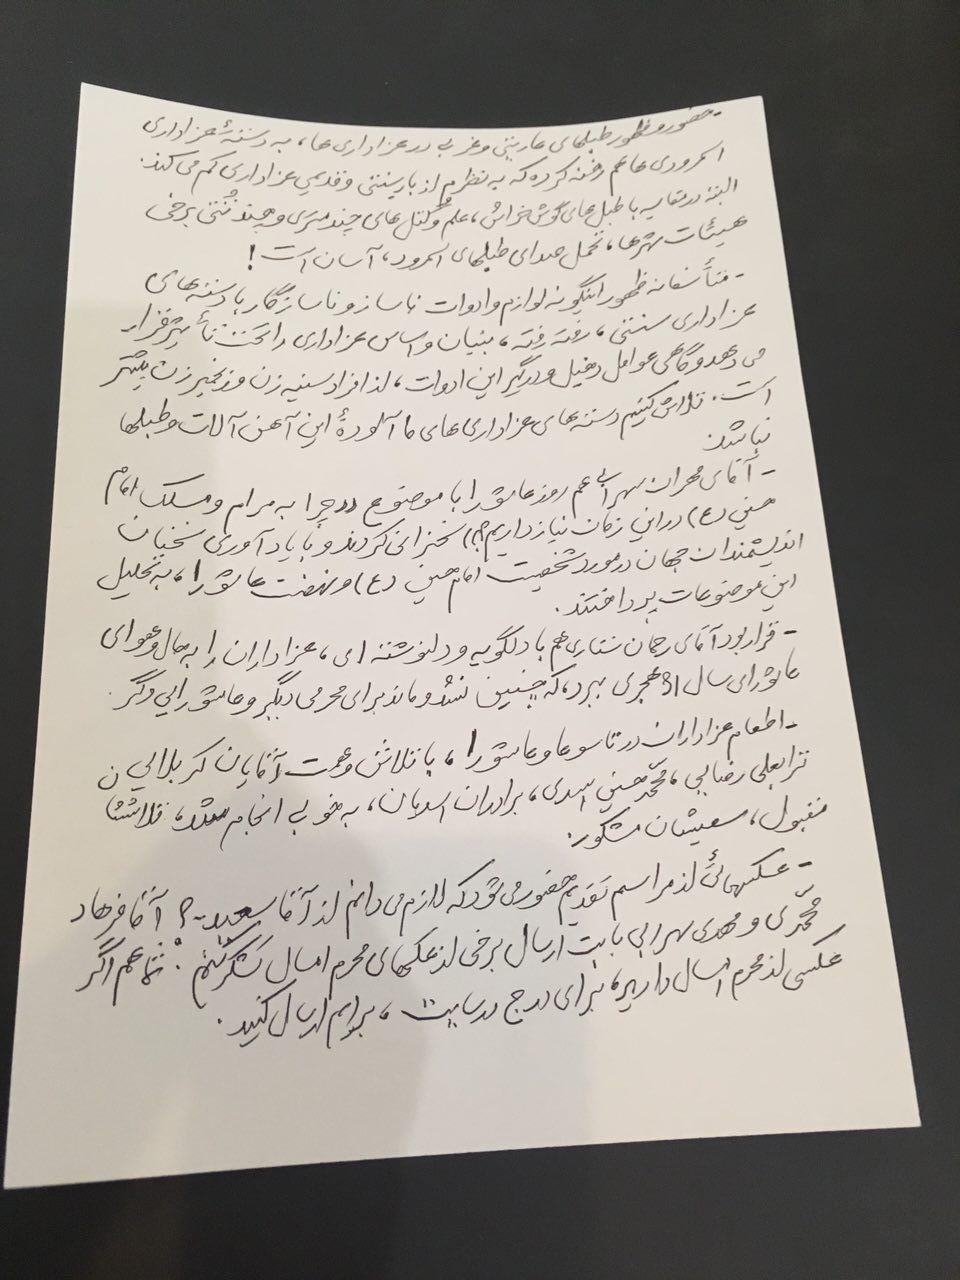 - حضور و ظهور طبلهای عاریتی و غربی در عزاداری ها، به دستهٔ عزاداری
امرودی ها هم رخنه کرده که به نظرم از بار سنتی و قدیمی عزاداری کم می کند.
البته در مقایسه با طبل های گوش خراش، علم و کتل های چند متری و چند تُنی برخی
هیئات شهرها، تحمل صدای طبلهای امرود، آسان است!
- متأسفانه ظهور اینگونه لوازم و ادوات ناساز و ناسازگار با دسته های
عزاداری سنتی، رفته رفته، بنیان و اساس عزاداری را تحت تأثیر قرار
می دهد و گاهی عوامل دخیل و درگیر این ادوات، از افراد سینه زن و زنجیر زن بیشتر
است. تلاش کنیم دسته های عزاداری های ما آلودهٔ این آهن آلات و طبلها
نباشند
- آقای مهران سهرابی هم روز عاشورا با موضوع ((چرا به مرام و مسلک امام
حسین (ع) در این زمان نیاز داریم؟)) سخنرانی کردند و با یادآوری سخنان
اندیشمندان جهان در مورد شخصیت امام حسین (ع) و نهضت عاشورا، به تحلیل
این موضوعات پرداختند.
- قرار بود آقای رحمان ستاری هم با دلگویه و دلنوشته ای، عزاداران را به حال و هوای
عاشورای سال ۶۱ هجری ببرد، که چنین نشد و ماند برای محرمی دیگر و عاشورایی دگر.
- اطعام عزاداران در تاسوعا و عاشورا، با تلاش و همت آقایان کربلایی
ترابعلی رضایی، محمّد حسین اسدی، برادران اسدیان، به خوبی انجام شد، تلاششان
مقبول، سعیشان مشکور.
- عکسهائی از مراسم تقدیم حضور می شود که لازم می دانم از آقا سعید، آقا فرهاد
محمّدی و مهدی سهرابی بابت ارسال برخی از عکسهای محرم امسال تشکر کنم. شما هم اگر
عکسی از محرم امسال دارید، برای درج در سایت، برایم ارسال کنید.